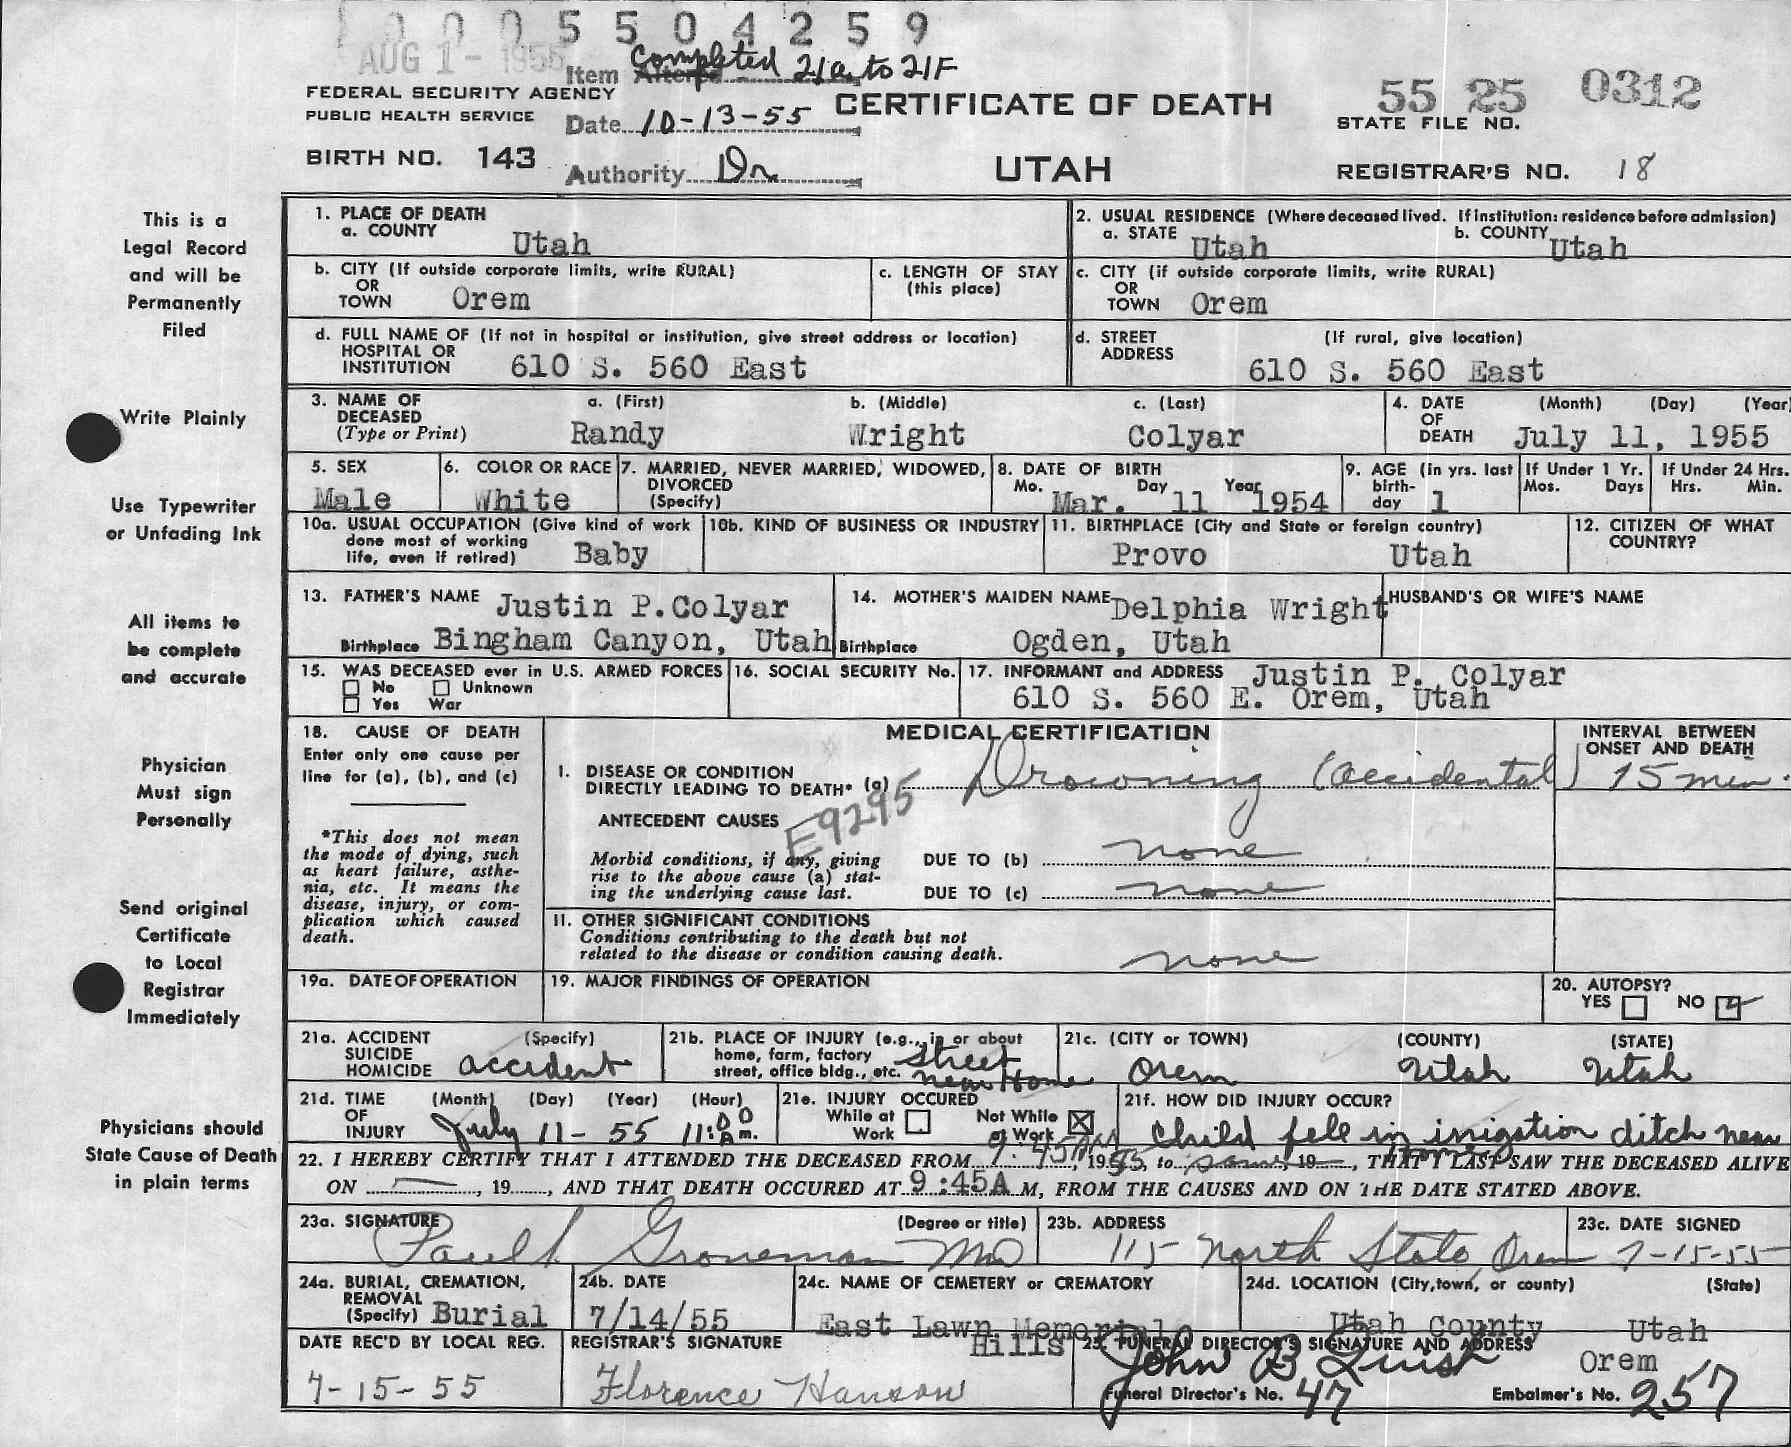 0005504259
AUG 1 - 1955
Item Altered Completed 21a to 21F
FEDERAL SECURITY AGENCY
PUBLIC HEALTH SERVICE
Date 10-13-55
CERTIFICATE OF DEATH
55 25 0312
STATE FILE NO.
BIRTH NO. 143
Authority Dr
UTAH
REGISTRAR'S NO. 18
This is a
Legal Record
and will be
Permanently
Filed
Write Plainly
Use Typewriter
or Unfading Ink
All items to
be complete
and accurate
Physician
Must sign
Personally
Send original
Certificate
to Local
Registrar
Immediately
Physicians should
State Cause of Death
in plain terms
1. PLACE OF DEATH
a. COUNTY Utah
2. USUAL RESIDENCE (Where deceased lived. If institution: residence before admission)
a. STATE Utah b. COUNTY Utah
b. CITY (If outside corporate limits, write RURAL)
OR
TOWN Orem
c. LENGTH OF STAY
(this place)
c. CITY (if outside corporate limits, write RURAL)
OR
TOWN Orem
d. FULL NAME OF (If not in hospital or institution, give street address or location)
HOSPITAL OR
INSTITUTION 610 S. 560 East
d. STREET (If rural, give location)
ADDRESS 610 S. 560 East
3. NAME OF DECEASED
(Type or Print)
a. (First) b. (Middle) c. (Last)
Randy Wright Colyar
4. DATE OF DEATH (Month) (Day) (Year)
July 11, 1955
5. SEX
Male
6. COLOR OR RACE
White
7. MARRIED, NEVER MARRIED, WIDOWED,
DIVORCED
(Specify)
8. DATE OF BIRTH
Mo. Day Year
Mar. 11 1954
9. AGE (in yrs. last
birth-
day 1
If Under 1 Yr.
Mos. Days
If Under 24 Hrs.
Hrs. Min.
10a. USUAL OCCUPATION (Give kind of work
done most of working
life, even if retired) Baby
10b. KIND OF BUSINESS OR INDUSTRY
11. BIRTHPLACE (City and State or foreign country)
Provo Utah
12. CITIZEN OF WHAT
COUNTRY?
13. FATHER'S NAME Justin P.Colyar
Birthplace Bingham Canyon, Utah
14. MOTHER'S MAIDEN NAME Delphia Wright
Birthplace Ogden, Utah
HUSBAND'S OR WIFE'S NAME
15. WAS DECEASED ever in U.S. ARMED FORCES
No Unknown
Yes War
16. SOCIAL SECURITY No.
17. INFORMANT and ADDRESS Justin P. Colyar
610 S. 560 E. Orem, Utah
18. CAUSE OF DEATH
Enter only one cause per
line for (a), (b), and (c)
*This does not mean
the mode of dying, such
as heart failure, asthe-
nia, etc. It means the
disease, injury, or com-
plication which caused
death.
MEDICAL CERTIFICATION
INTERVAL BETWEEN
ONSET AND DEATH
I. DISEASE OR CONDITION
DIRECTLY LEADING TO DEATH* (a) Drowning (Accidental) 15 min.
ANTECEDENT CAUSES
E9295
Morbid conditions, if any, giving
rise to the above cause (a) stat-
ing the underlying cause last.
DUE TO (b) none
DUE TO (c) none
II. OTHER SIGNIFICANT CONDITIONS
Conditions contributing to the death but not
related to the disease or condition causing death.
none
19a. DATE OF OPERATION
19. MAJOR FINDINGS OF OPERATION
20. AUTOPSY?
YES NO
21a. ACCIDENT (Specify)
SUICIDE
HOMICIDE accident
21b. PLACE OF INJURY (e.g., in or about
home, farm, factory
street, office bldg., etc. street
near Home
21c. (CITY or TOWN) (COUNTY) (STATE)
Orem Utah Utah
21d. TIME (Month) (Day) (Year) (Hour)
OF
INJURY July 11- 55 11:00 Am.
21e. INJURY OCCURED
While at Work
Not While at Work
21f. HOW DID INJURY OCCUR?
Child fell in irrigation ditch near
home
22. I HEREBY CERTIFY THAT I ATTENDED THE DECEASED FROM 9:45AM, 1955, to same, 19—, THAT I LAST SAW THE DECEASED ALIVE
ON —, 19......, AND THAT DEATH OCCURED AT 9:45A M, FROM THE CAUSES AND ON THE DATE STATED ABOVE.
23a. SIGNATURE (Degree or title)
Groneman MD
23b. ADDRESS
115 North State, Orem
23c. DATE SIGNED
7-15-55
24a. BURIAL, CREMATION,
REMOVAL
(Specify) Burial
24b. DATE
7/14/55
24c. NAME OF CEMETERY or CREMATORY
East Lawn Memorial
Hills
24d. LOCATION (City,town, or county) (State)
Utah County Utah
DATE REC'D BY LOCAL REG.
7-15-55
REGISTRAR'S SIGNATURE
Florence Hanson
25. FUNERAL DIRECTOR'S SIGNATURE AND ADDRESS
John B Orem
Funeral Director's No. 47 Embalmer's No. 257